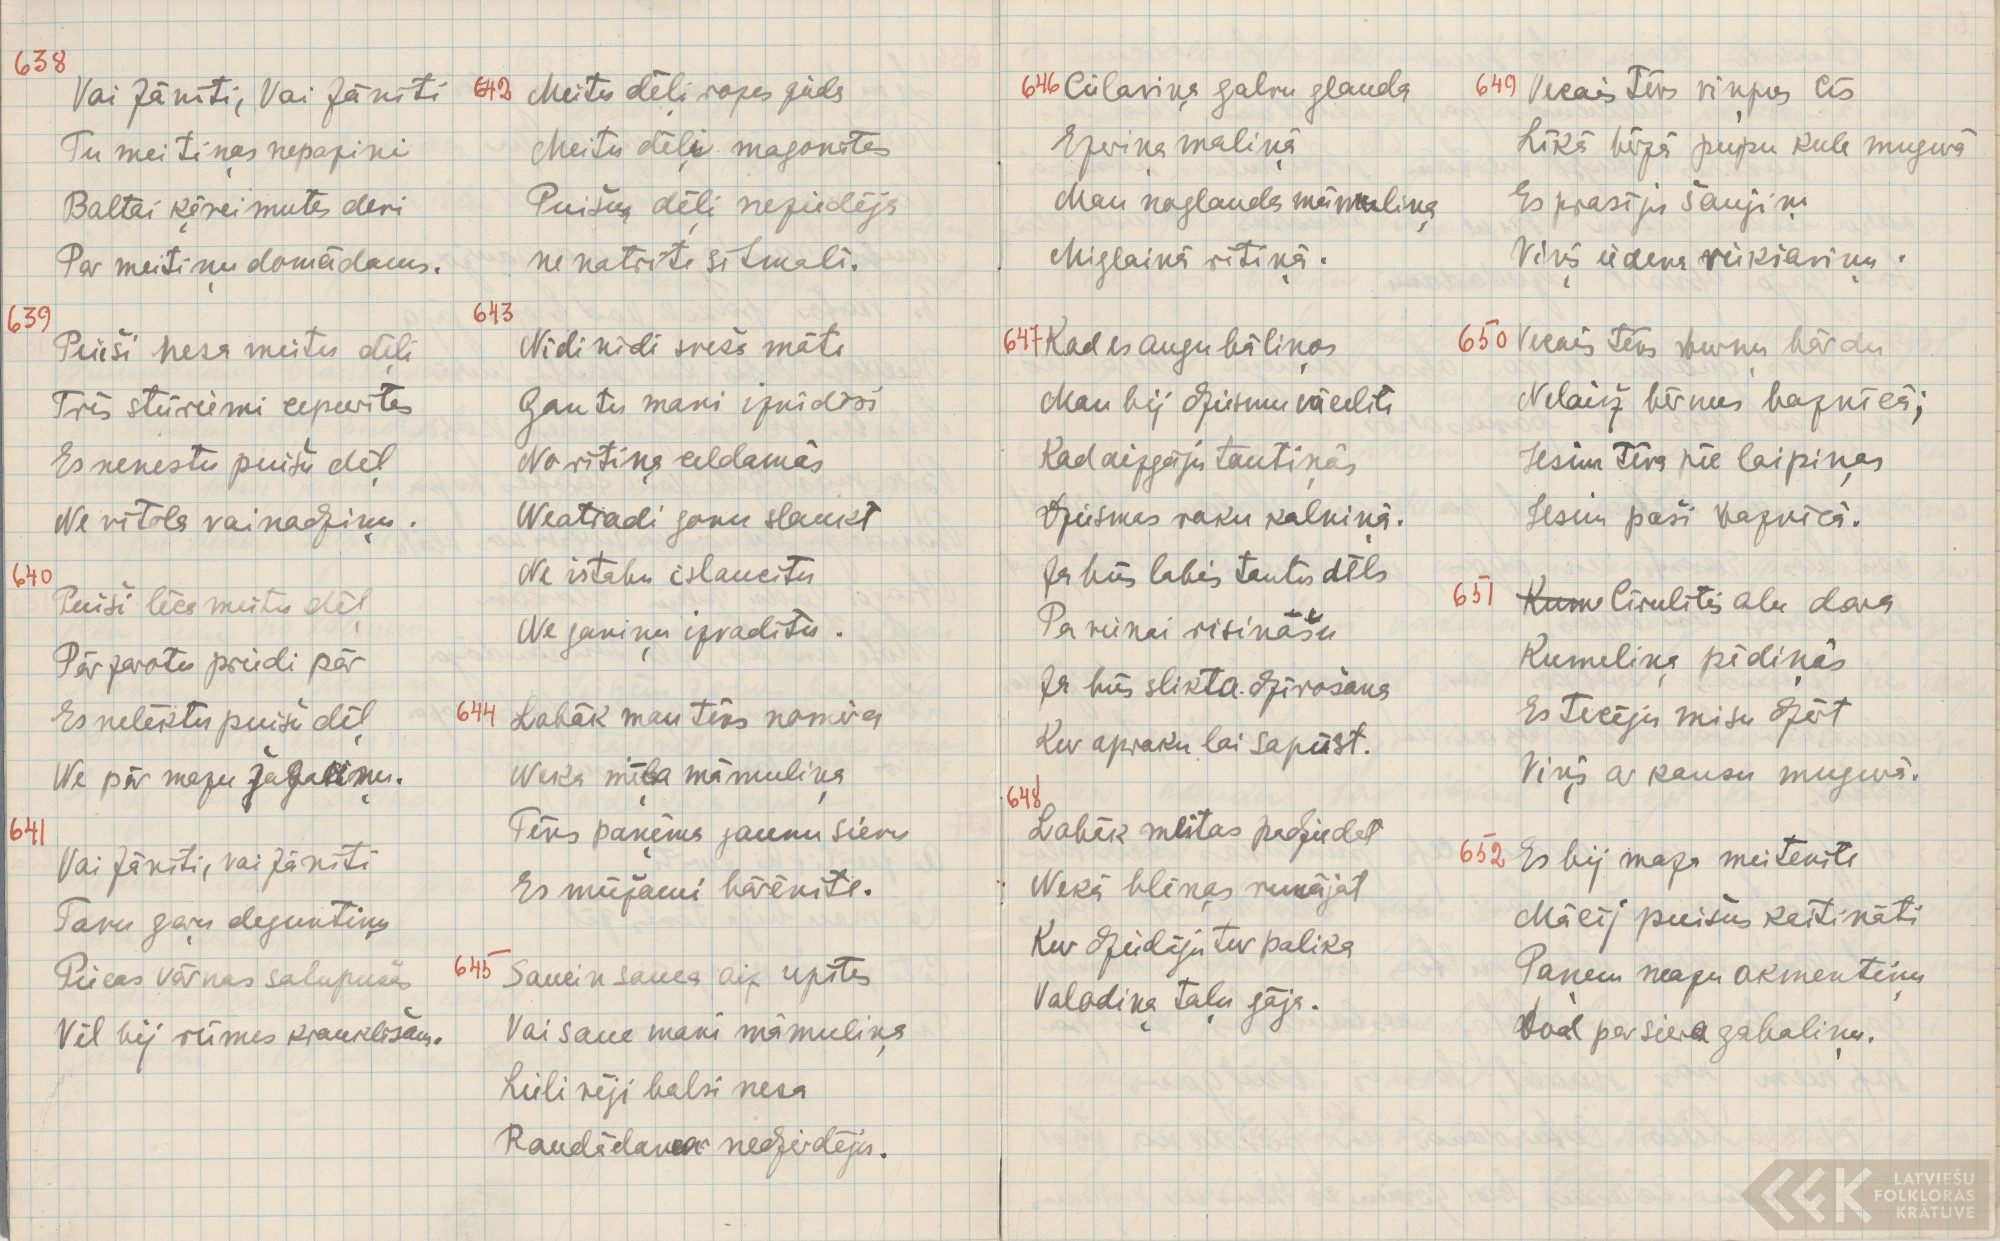 638
Vai Jānīti, Vai Jānīti
Tu meitiņas nepazini
Baltai ķēvei mutes devi
Par meitiņu domādams.
639
Puiši nesa meitu dēļi
Trīs stūriemi cepurītes
Es nenestu puišu dēļ
Ne vītola vainadziņu.
640
Puiši lēca meitu dēļ
Pār zarotu priedi pār
Es nelēktu puišu dēļ
Ne pār mazu žagariņu.
641
Vai Jānīti, vai Jānīti
Tavu garu deguntiņu
Pieces vārnas satupušas
Vēl bij rūmes krauklīšam.
642 Meitu dēļi rozes zieda
Meitu dēļi magonītes
Puišu dēļi neziedēja
ne natrīte sētmalī.
643
Nīdi nīdi sveša māte
Gan tu mani iznīdēsi
No rītiņa celdamās
Neatradi govu slaukt
Ne istabu islaucītu
Ne ganiņu izvadītu.
644 Labāk man tēvs nomira
Neka mīļa māmuliņa
Tēvs paņēma jaunu sievu
Es mūžami bārēnīte.
645 Saucin sauca aiz upītes
Vai sauc mani māmuliņa
Lieli vēji balsi nesa
Raudādama nedzirdēju.
646 Cūlaviņa galvu glauda
Ezeriņa maliņā
Man noglauda māmuliņa
Miglainā rītiņā.
647 Kad es augu bāliņos
Man bij dziesmu vācelīte
Kad aizgāju tautiņās
Dziesmas raku kalniņā.
Ja būs labis tautu dēls
Pa vienai risināšu
Ja būs slikta dzīvošana
Kur apraku lai sapūst.
648
Labāk meitas padziedat
Nekā blēņas runājat
Kur dziedāju tur palika
Valodiņa taļu gāja.
649 Vecais Tēvs riņņus cīs
Līkā bērzā pupu kule mugurā
Es prasīju šaujiņu
Viņš ūdeņa rūkšaviņu.
650 Vecais tēvs burņu bārdu
Nelaiž bērnus baznīcā;
Iesim Tēva pie laipiņas
Iesim paši baznīcā.
651 Kume Cīrulītis alu dara
Kumeliņa pēdiņās
Es tecēju misu dzērt
Viņš ar kausu mugurā.
652 Es bij maza meitenīte
Mācēj puišus kaitināti
Paņem mazu akmentiņu
Dod par siera gabaliņu.
LATVIEŠU
FOLKLORAS
KRĀTUVE